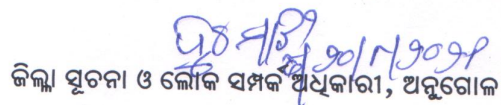 ୨୦/୮/୨୦୨୧
ଜିଲ୍ଲା ସୂଚନା ଓ ଲୋକ ସମ୍ପର୍କ ଅଧିକାରୀ, ଅନୁଗୋଳ